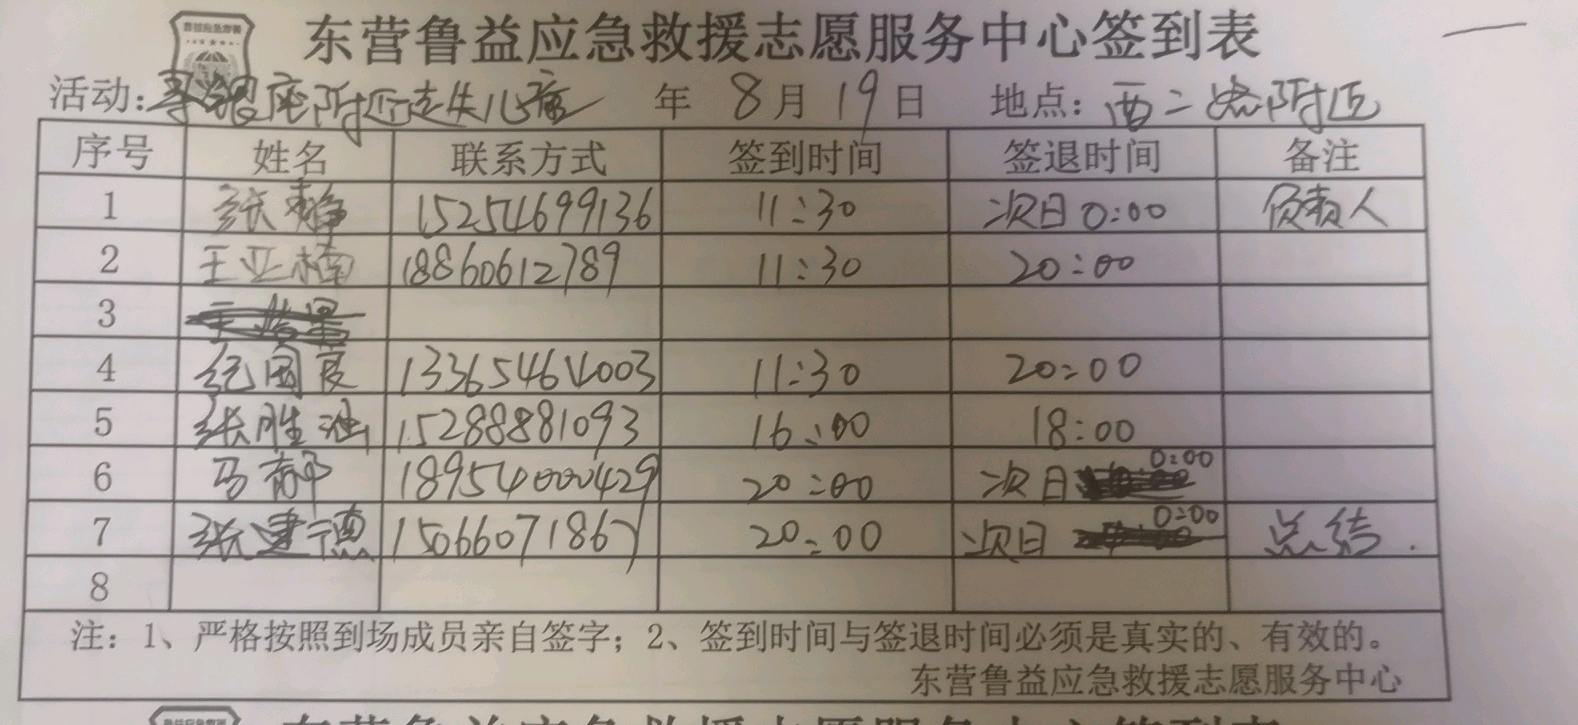 东营鲁益应急救援志愿服务中心签到表
活动:寻银座附近走失儿童 年 8月19日 地点:西二路附近
序号 姓名 联系方式 签到时间 签退时间 备注
1 张静 15254699136 11:30 次日0:00 负责人
2 王亚楠 18860612789 11:30 20:00
3
4 纪国良 13365464003 11:30 20:00
5 张胜 15288881093 16:00 18:00
6 马 18954000429 20:00 次日 0:00
7 张建德 15066071867 20:00 次日 0:00 总结.
8
注:1、严格按照到场成员亲自签字;2、签到时间与签退时间必须是真实的、有效的。
东营鲁益应急救援志愿服务中心
东营鲁益应急救援志愿服务中心签到表